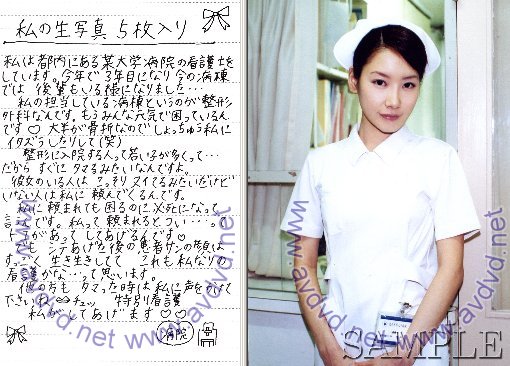 私の生写真 5枚入り
私は都内にある某大学病院の看護士を
しています。今年で3年目になり今の病棟
では 後輩もいる様になりました…
私の担当している病棟というのが整形
外科なんです。もうみんな元気で困っているん
です♡ 大半が骨折なのでしょっちゅう私に
イタズラしたりして(笑)
整形に入院する人って若い子が多くって…
だから すぐに タマるみたいなんですよ。
彼女のいる人は こっそりヌイてるみたいだけど
いない人は私に 頼んでくるんです。
私に頼まれても困るのに必死になって
言うんです。私って頼まれるとつい…。の
があって してあげるんです♡
でも シテあげた後の患者サンの顔は
すっごく 生き生きしてて これも私なりの
看護かな…って思います。
他の方も タマった時は 私に声をかけて
下さいね チュッ 特別看護
私がしてあげます♡♡
病院
www.avdvd.net
www.avdvd.net
www.avdvd.net
SAMPLE